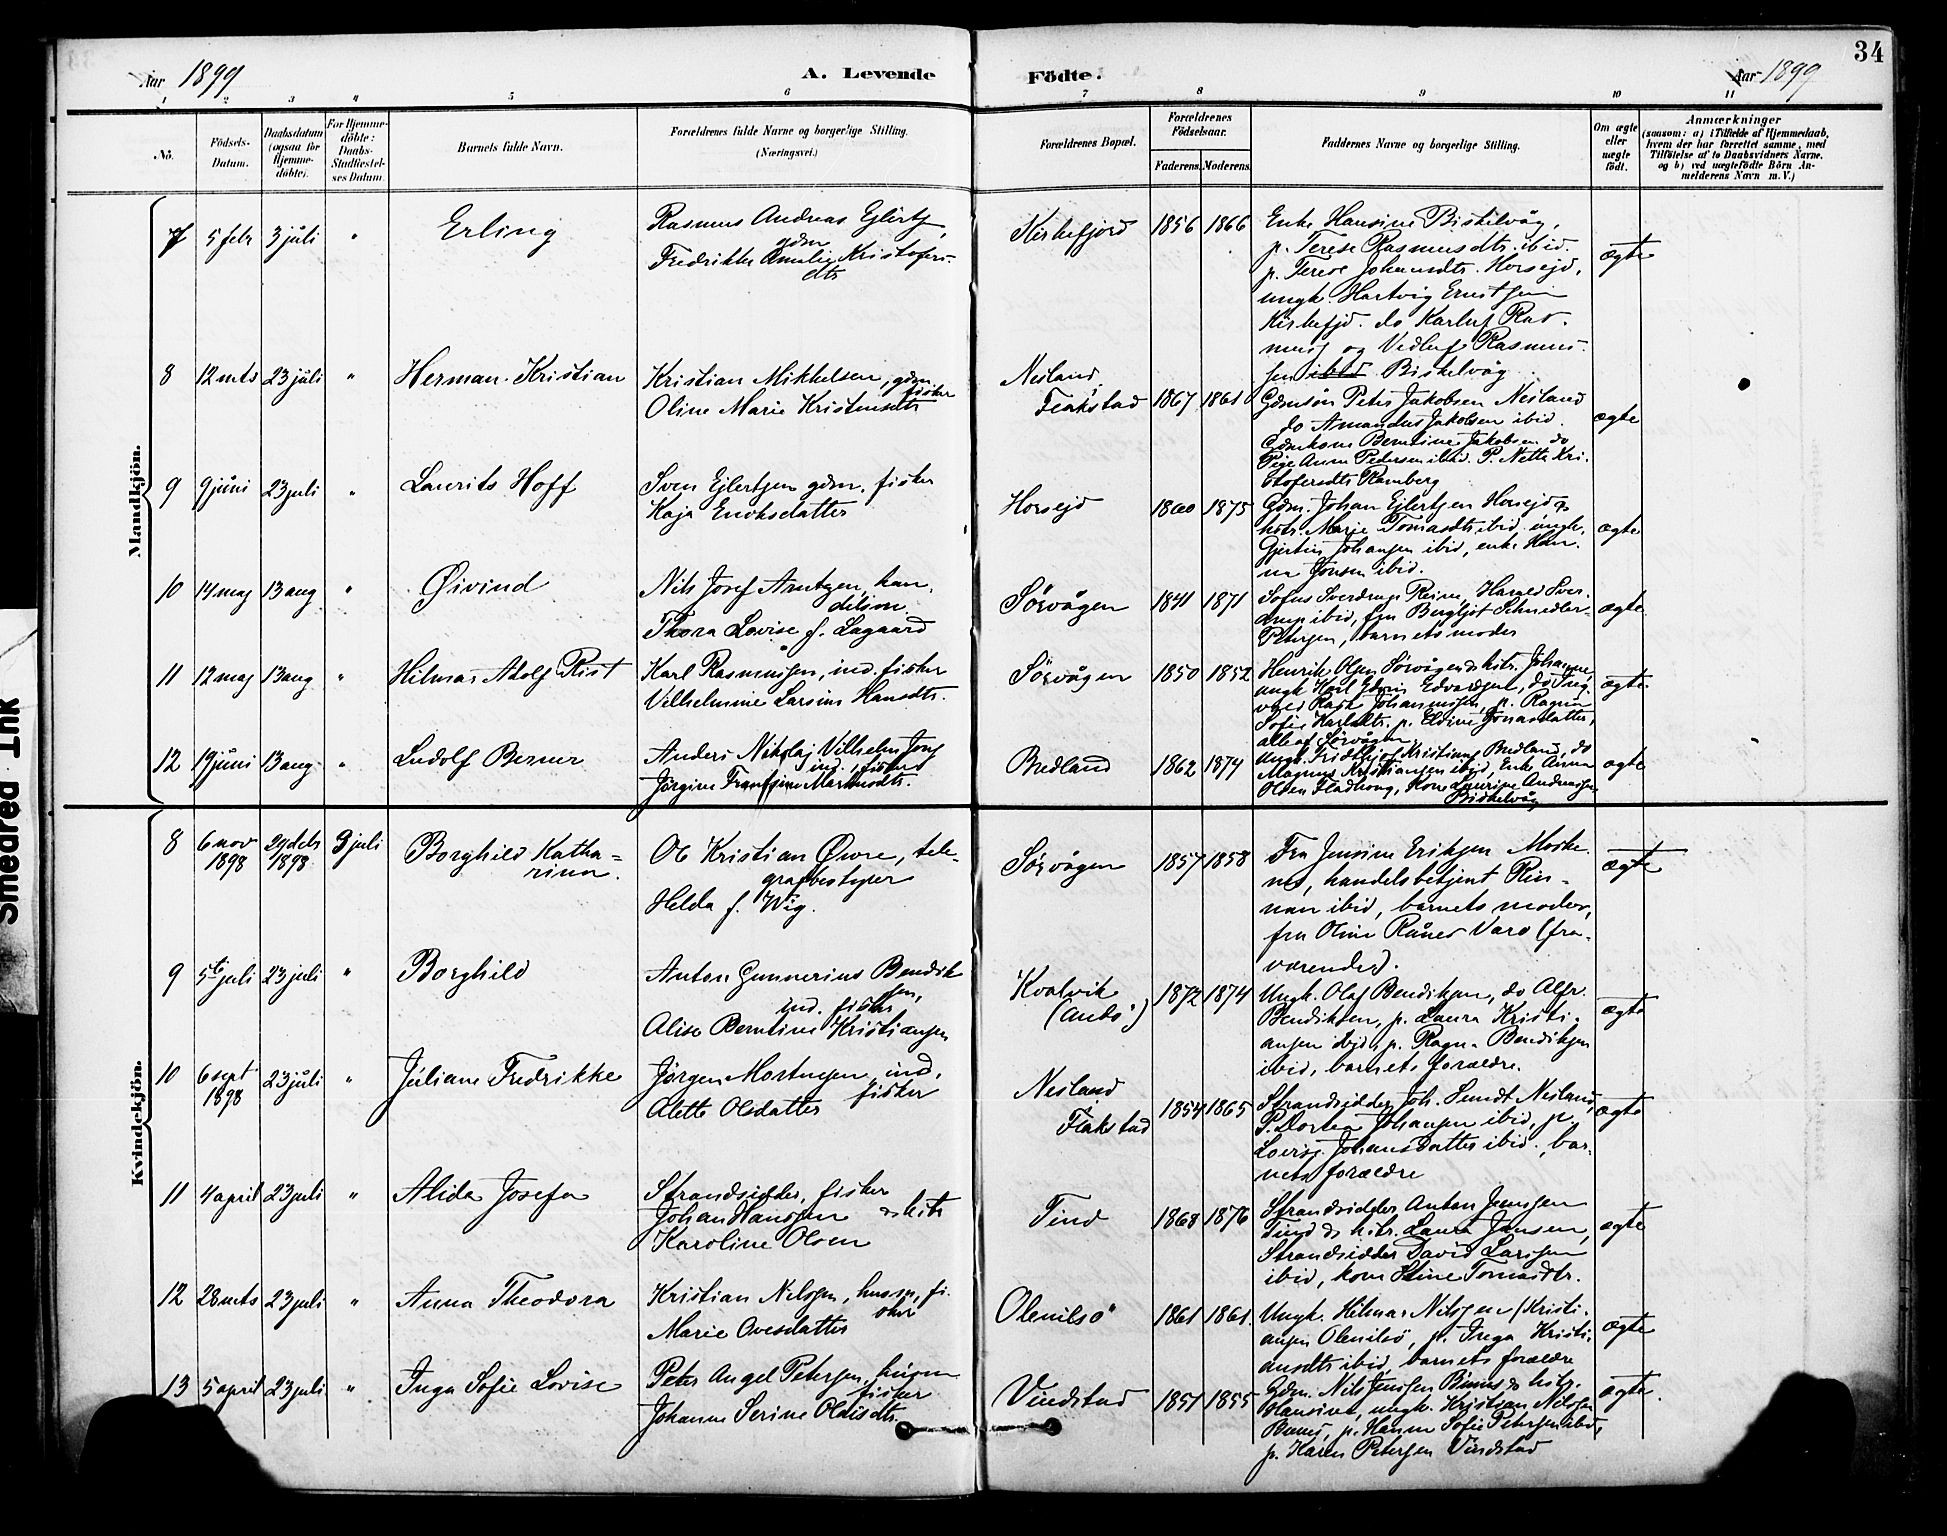 34
Aar 1899 A. Levende Födte. Aar 1899
1 2 3 4 5 6 7 8 9 10 11
No.
Födsels-Datum.
Daabsdatum (ogsaa för Hjemmedöbte).
For Hjemmedöbte: Daabs-Stadfæstelses Datum.
Barnets fulde Navn.
Forældrenes fulde Navne og borgerlige Stilling. (Næringsvei.)
Forældrenes Bopæl.
Forældrenes Födselsaar. Faderens. Moderens.
Faddernes Navne og borgerlige Stilling.
Om ægte eller uægte födt.
Anmærkninger
(saasom: a) i Tilfælde af Hjemmedaab, hvem der har forrettet samme, med Tilföielse af to Daabsvidners Navne, og b) ved uægtefödte Börn Anmelderens Navn m. V.)
Mandkjön.
7 5 febr 3 juli " Erling
Rasmus Andreas Ejlertsen,
gdm
Fredrikke Amalie Kristofers-
dtr
Kirkefjord 1856 1866
Enke Hansine Biskelvåg,
p. Terese Rasmusdtr. ibid.
p. Terese Johansdtr. Horsejd,
ungk. Hartvig Ernstsen
Kirkefjd. do Karluf Ras-
muss og Vedluf Rasmus-
sen ibid Biskelvåg
ægte
8 12 mts 23 juli " Herman Kristian
Kristian Mikkelsen, gdm.
fisker
Oline Marie Kristensdtr
Nesland
Flakstad 1867 1861
Gdmsøn Peter Jakobsen Nesland
do Amandus Jakobsen ibid.
Gdmkone Berntine Jakobsen do
Pige Anna Pedersen ibid. P. Netta Kri-
stofersdtr Ramberg
ægte
9 9 juni 23 juli " Laurits Hoff
Sven Ejlertsen gdm. fisker
Kaja Enoksdatter
Horsejd 1860 1875
Gdm. Johan Ejlertsen Horsejd &
hstr. Marie Tomasdtr ibid. ungk.
Gjertin Johansen ibid, enke Han-
na Jonsen ibid.
ægte
10 14 maj 13 aug " Øivind
Nils Josef Arntzen, han-
delsm.
Thora Lovise f. Lagaard
Sörvågen 1841 1871
Sofus Sverdrup Reine, Harald Sver-
drup ibid, frk Bergljot Schiedler-
Petersen, barnets moder
ægte
11 12 maj 13 aug " Hilmar Adolf Rist
Karl Rasmussen, ind. fisker
Vilhelmine Larsine Hansdtr.
Sörvågen 1850 1852
Henrik Olsen Sörvågen & hstr. Johanne,
ungk Karl Edvin Edvardsen, do Ing-
vald Rask Johannessen, p. Ragna
Sofie Karlsdtr. p. Eldine Jonasdatter,
alle af Sörvågen
ægte
12 19 juni 13 aug " Ludolf Berner
Anders Nikolaj Vilhelm Jons
ind. fisker
Jörgine Fransine Martinsdtr.
Bredland 1862 1874
Ungk. Fridthjof Kristians Bredland, do
Magnus Kristiansen ibid, Enke Anna
Olsen Fladhaug, Kone Laurine Andreassen
Biskelvåg
ægte
Kvindekjön.
8 6 nov 1898 29 debr 1898 9 juli Borghild Katha=
rina.
Ole Kristian Övre, tele-
grafbestyrer
Helda f. Wig.
Sörvågen 1857 1858
Fru Jensine Eriksen Moske-
nes, handelsbetjent Rin-
nan ibid, barnets moder,
fru Oline Råner Varö (fra-
værende).
ægte
9 5te juli 23 juli " Borghild
Anton Gunnerius Bendik
sen,
ind. fisker
Alise Berntine Kristiansen
Kvalvik
(Andö) 1872 1874
Ungk. Olaf Bendiksen, do Alfr.
Bendiksen, p. Laura Kristi-
ansen ibid, p. Ragna Bendiksen
ibid, barnets forældre.
ægte
10 6 sept 1898 23 juli " Juliane Fredrikke
Jörgen Mortensen, ind.
fisker
Alette Olsdatter
Nesland
Flakstad 1854 1865
Strandsidder Joh. Sundt Nesland,
P. Dortea Johansen ibid, p.
Lovise Johansdatter ibid., bar-
nets forældre
ægte
11 4 april 23 juli " Alida Josefa
Strandsidder, fisker
Johan Hanssen & hstr
Karoline Olsen
Tind 1868 1876
Strandsidder Anton Jenssen
Tind & hstr. Laura Jensen,
Strandsidder David Larssen
ibid, kone Stine Tomasdtr.
ægte
12 28 mts 23 juli " Anna Theodora
Kristian Nilssen, husm, fi-
sker
Marie Ovesdatter
Olenilsö 1861 1861
Ungk. Hilmar Nilssen (Kristi-
ansen Olenilsö, p. Inga Kristi-
ansdtr ibid, barnets forældre
ægte
13 5 april 23 juli " Inga Sofie Lovise
Peter Angel Petersen, husm
fisker
Johanna Serine Oldisdtr.
Vindstad 1851 1855
Gdm. Nils Jenssen Bunes & hstr.
Hansine, ungk. Kristian Nilssen
Bunes, p. Hanna Sofie Petersen ibid,
p. Haren Petersen Vindstad
ægte.
Smedred Ink